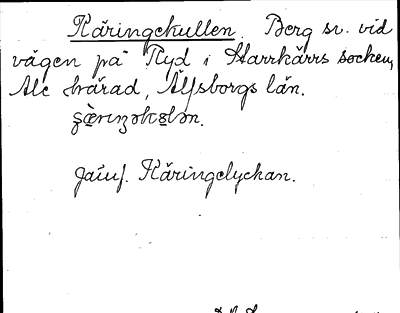 Käringekullen. Berg sv. vid
vägen på Ryd i Starrkärrs socken,
Ale härad, Älfsborgs län.
Jämf. Käringelyckan.